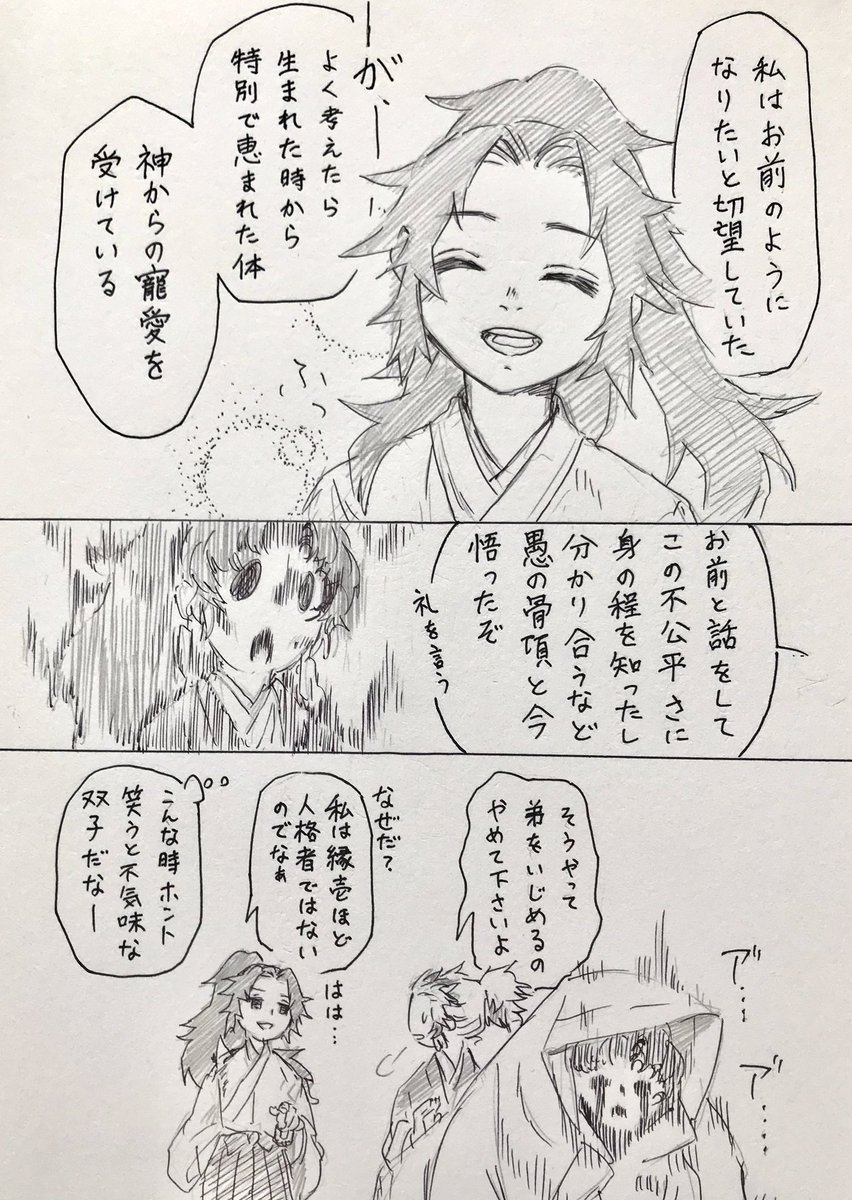 私はお前のように
なりたいと切望していた
ーがー
よく考えたら
生まれた時から
特別で恵まれた体
神からの寵愛を
受けている
ふっ
お前と話をして
この不公平さに
身の程を知ったし
分かり合うなど
愚の骨頂と今
悟ったぞ
礼を言う
そうやって
弟をいじめるの
やめて下さいよ
なぜだ?
私は縁壱ほど
人格者ではない
のでなぁ
はは…
こんな時ホント
笑うと不気味な
双子だなー
ア゛…
ア゛…